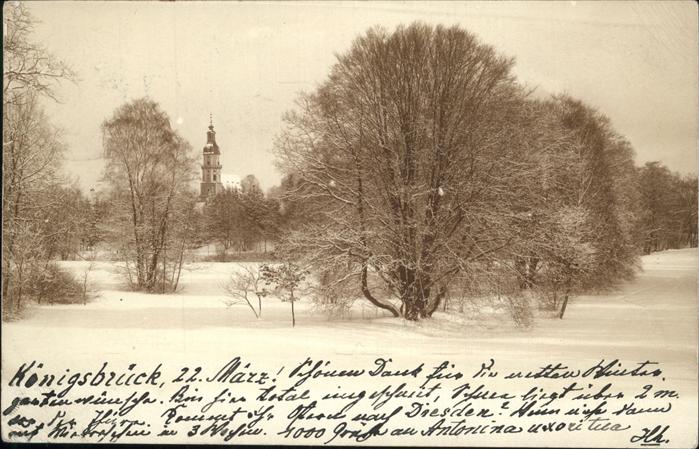 Königsbrück, 22. März! Schönen Dank für die netten Winter
gartenwünsche. Bin hier total eingeschneit, Schnee liegt über 2 m.
vor der Thüre. Kommt Ihr Ostern nach Dresden? Wenn nicht dann
auf Wiedersehen in 3 Wochen. 4000 Grüße an Antonina uxoritua